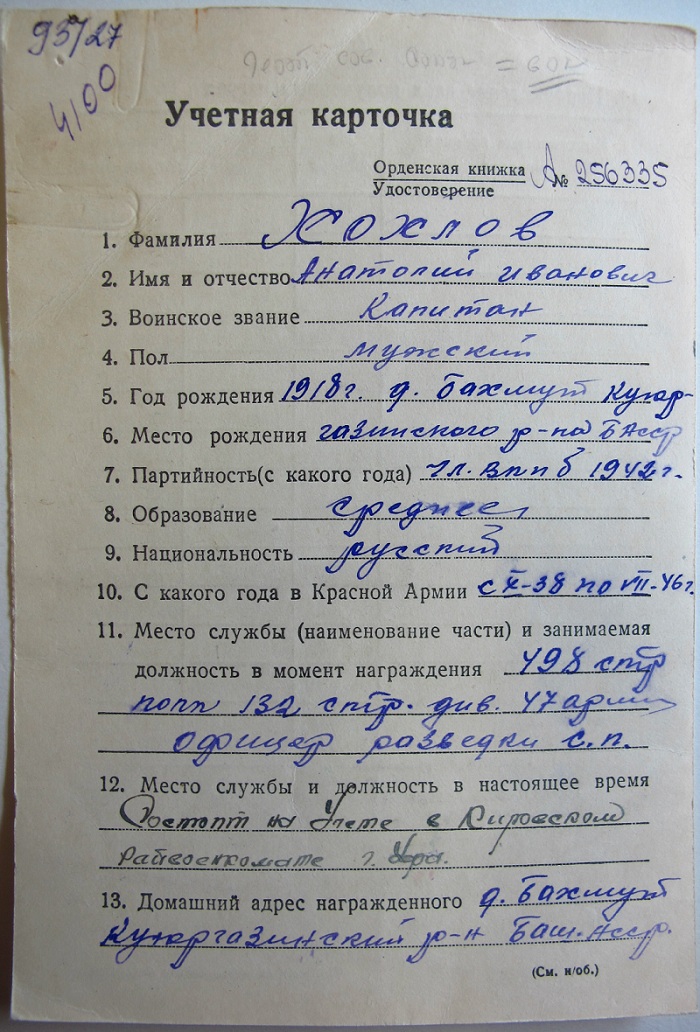 93/27
4100
= вон
Учетная карточка
Орденская книжка А № 256335
Удостоверение
1. Фамилия Хохлов
2. Имя и отчество Анатолий Иванович
3. Воинское звание Капитан
4. Пол мужский
5. Год рождения 1918г. д. Бахмут Куюр-
6. Место рождения газинского р-на БАССР
7. Партийность(с какого года) чл. ВКПб 1942г.
8. Образование среднее
9. Национальность русский
10. С какого года в Красной Армии с X-38 по VII-46г.
11. Место службы (наименование части) и занимаемая
должность в момент награждения 498 стр
полк 132 стр. див. 47 армии
офицер разведки с.п.
12. Место службы и должность в настоящее время
Состоит на Учете в Кировском
Райвоенкомате г. Уфа.
13. Домашний адрес награжденного д. Бахмут
Куюргазинский р-н Баш. АССР.
(См. н/об.)